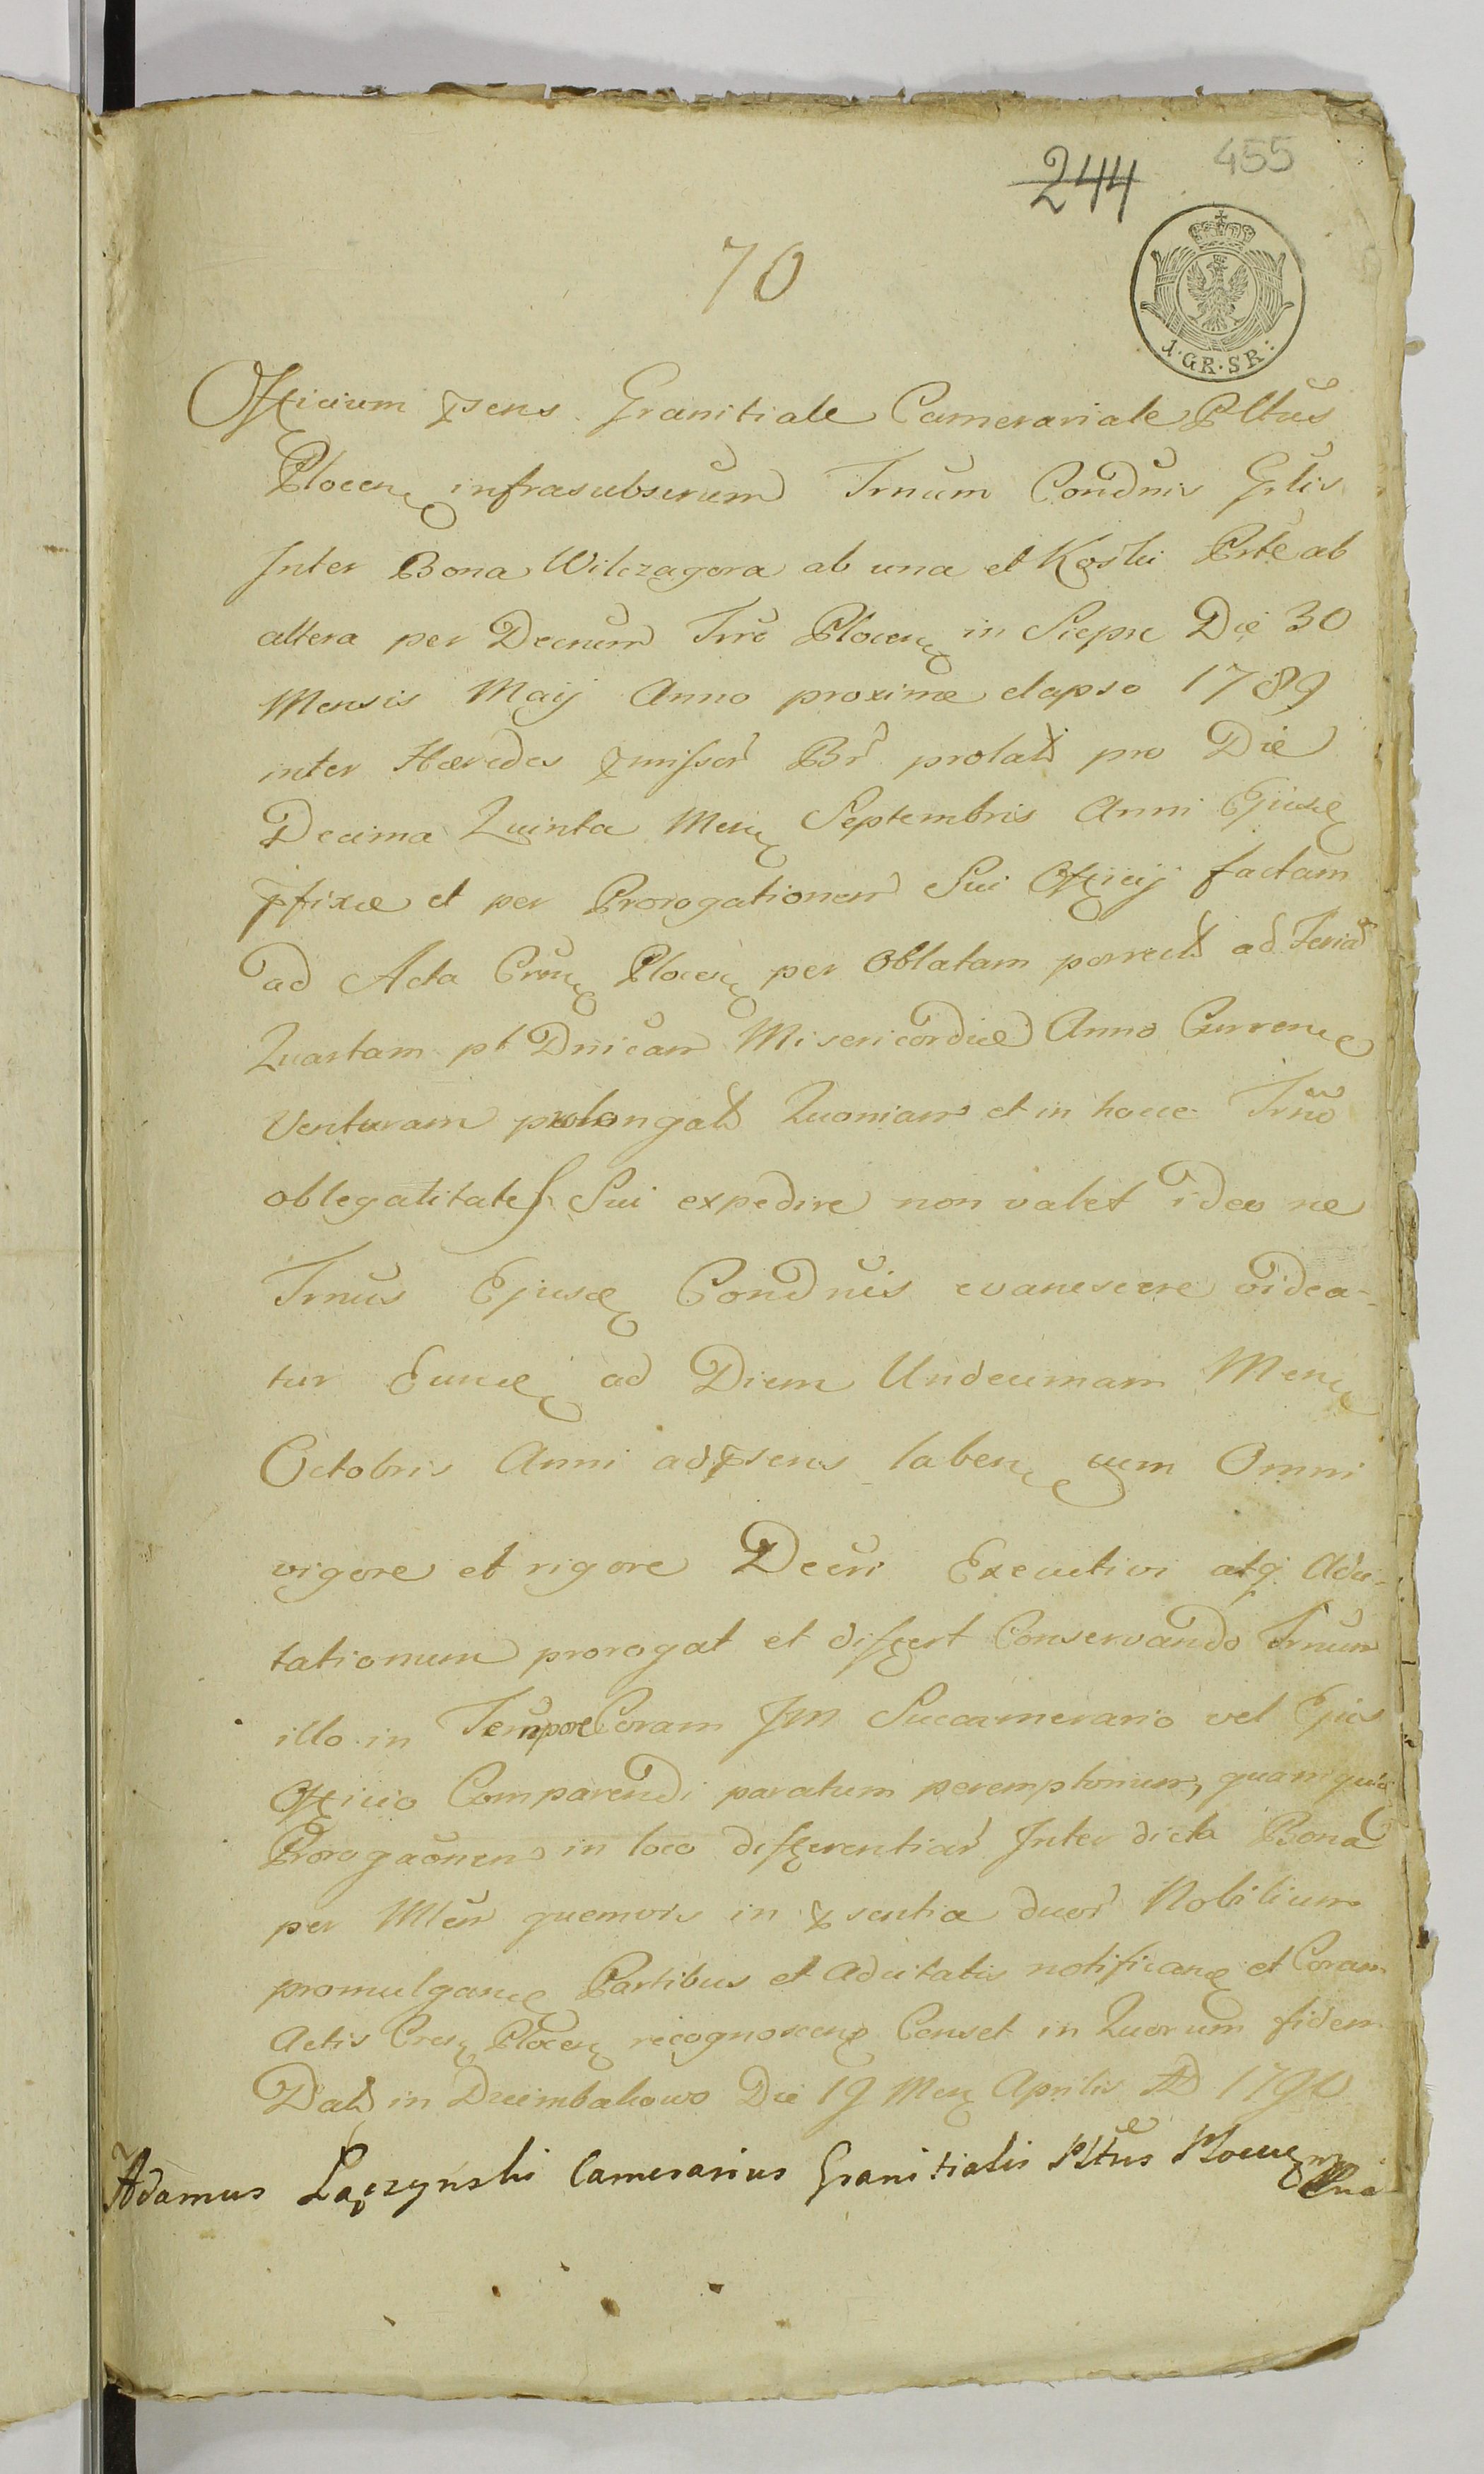 244 455
70
1·GR·SR:
Officium pssens Granitiale Camerariale Pltus
Plocen infrasubscrum Trnum Condnis Grlis
Inter Bona Wilczagora ab una et Koski Prte ab
altera per Decrum Trre Plocen in Siepre Die 30
Mensis Maij Anno proxime elapso 1789
inter Hæredes pmissor Br prolat pro Die
Decima Quinta Men Septembris Anni Ejusd
pfixæ et per Prorogationem Sui Officij factam
ad Acta Plocen per Oblatam porrect ad Feria
Quartam pt Dnicam Misericordiæ Anno Curren
Venturam prolongat Quoniam et in hocce Trno
oblegalitates Sui expedire non valet ideo ne
Trnus Ejusd Condnis evanescere videa-
tur Eund ad Diem Undecimam Men
Octobris Anni adpsens laben cum Omni
vigore et rigore Decri Executivi atq Adci-
tationum prorogat et differt Conservando Trnum
illo in Tempore Coram Jm Succamerario vel Ejus
Officio Comparendi paratum peremptorium, quam quid
Prorogaonem in loco differentiar Inter dicta Bona
per Mlem quemvis in psentia duor Nobilium
promulgand Partibus et Adcitatis notificand et Coram
Actis Plocen recognoscend Censet in Quorum fidem
Dat in Dziembakowo Die 19 Men Aprilis AD 1790
Adamus Łączynski Camerarius Granitialis Pltus Plocen